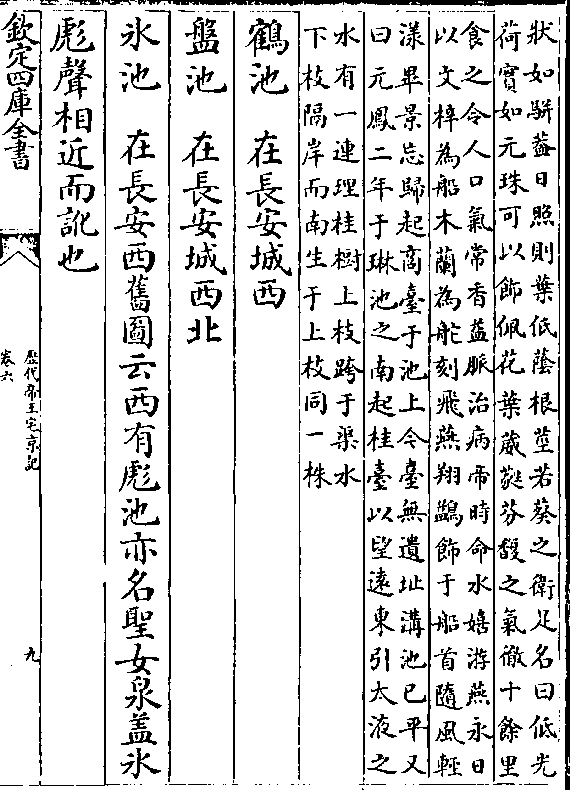 狀如駢葢日照則葉低䕃根莖若葵之衛足名曰低光
荷實如元珠可以飾佩花葉葳蕤芬馥之氣徹十餘里
食之令人口氣常香益脈治病帝時命水嬉游燕永日
以文梓為船木蘭為舵刻飛燕翔鷁飾于船首隨風輕
漾畢景忘歸起商臺于池上今臺無遺址溝池已平又
曰元鳳二年于琳池之南起桂臺以望逺東引太液之
水有一連理桂樹上枝跨于渠水
下枝隔岸而南生于上枝同一株
鶴池　在長安城西
盤池　在長安城西北
氷池　在長安西舊圖云西有彪池亦名聖女泉盖氷
彪聲相近而訛也
欽定四庫全書
歴代帝王宅京記
卷六
九